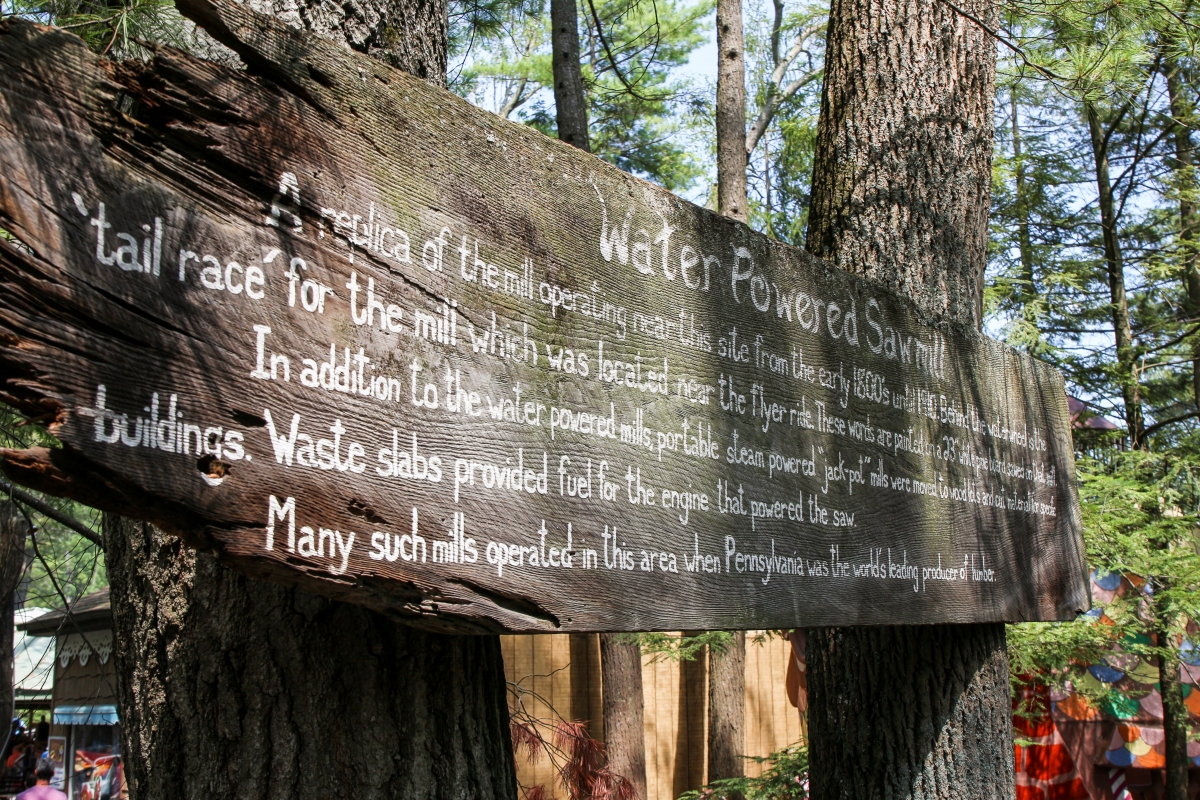 Water Powered Sawmill
A replica of the mill operating near this site from the early 1800's until 1910. Behind the
'tail race' for the mill which was located near the flyer ride. These words are painted on a 23" white pine board sawed on that mill.
In addition to the water powered mills, portable steam powered "jack-pot" mills were moved to wood lots and cut material for specific
buildings. Waste slabs provided fuel for the engine that powered the saw.
Many such mills operated in this area when Pennsylvania was the world's leading producer of lumber.